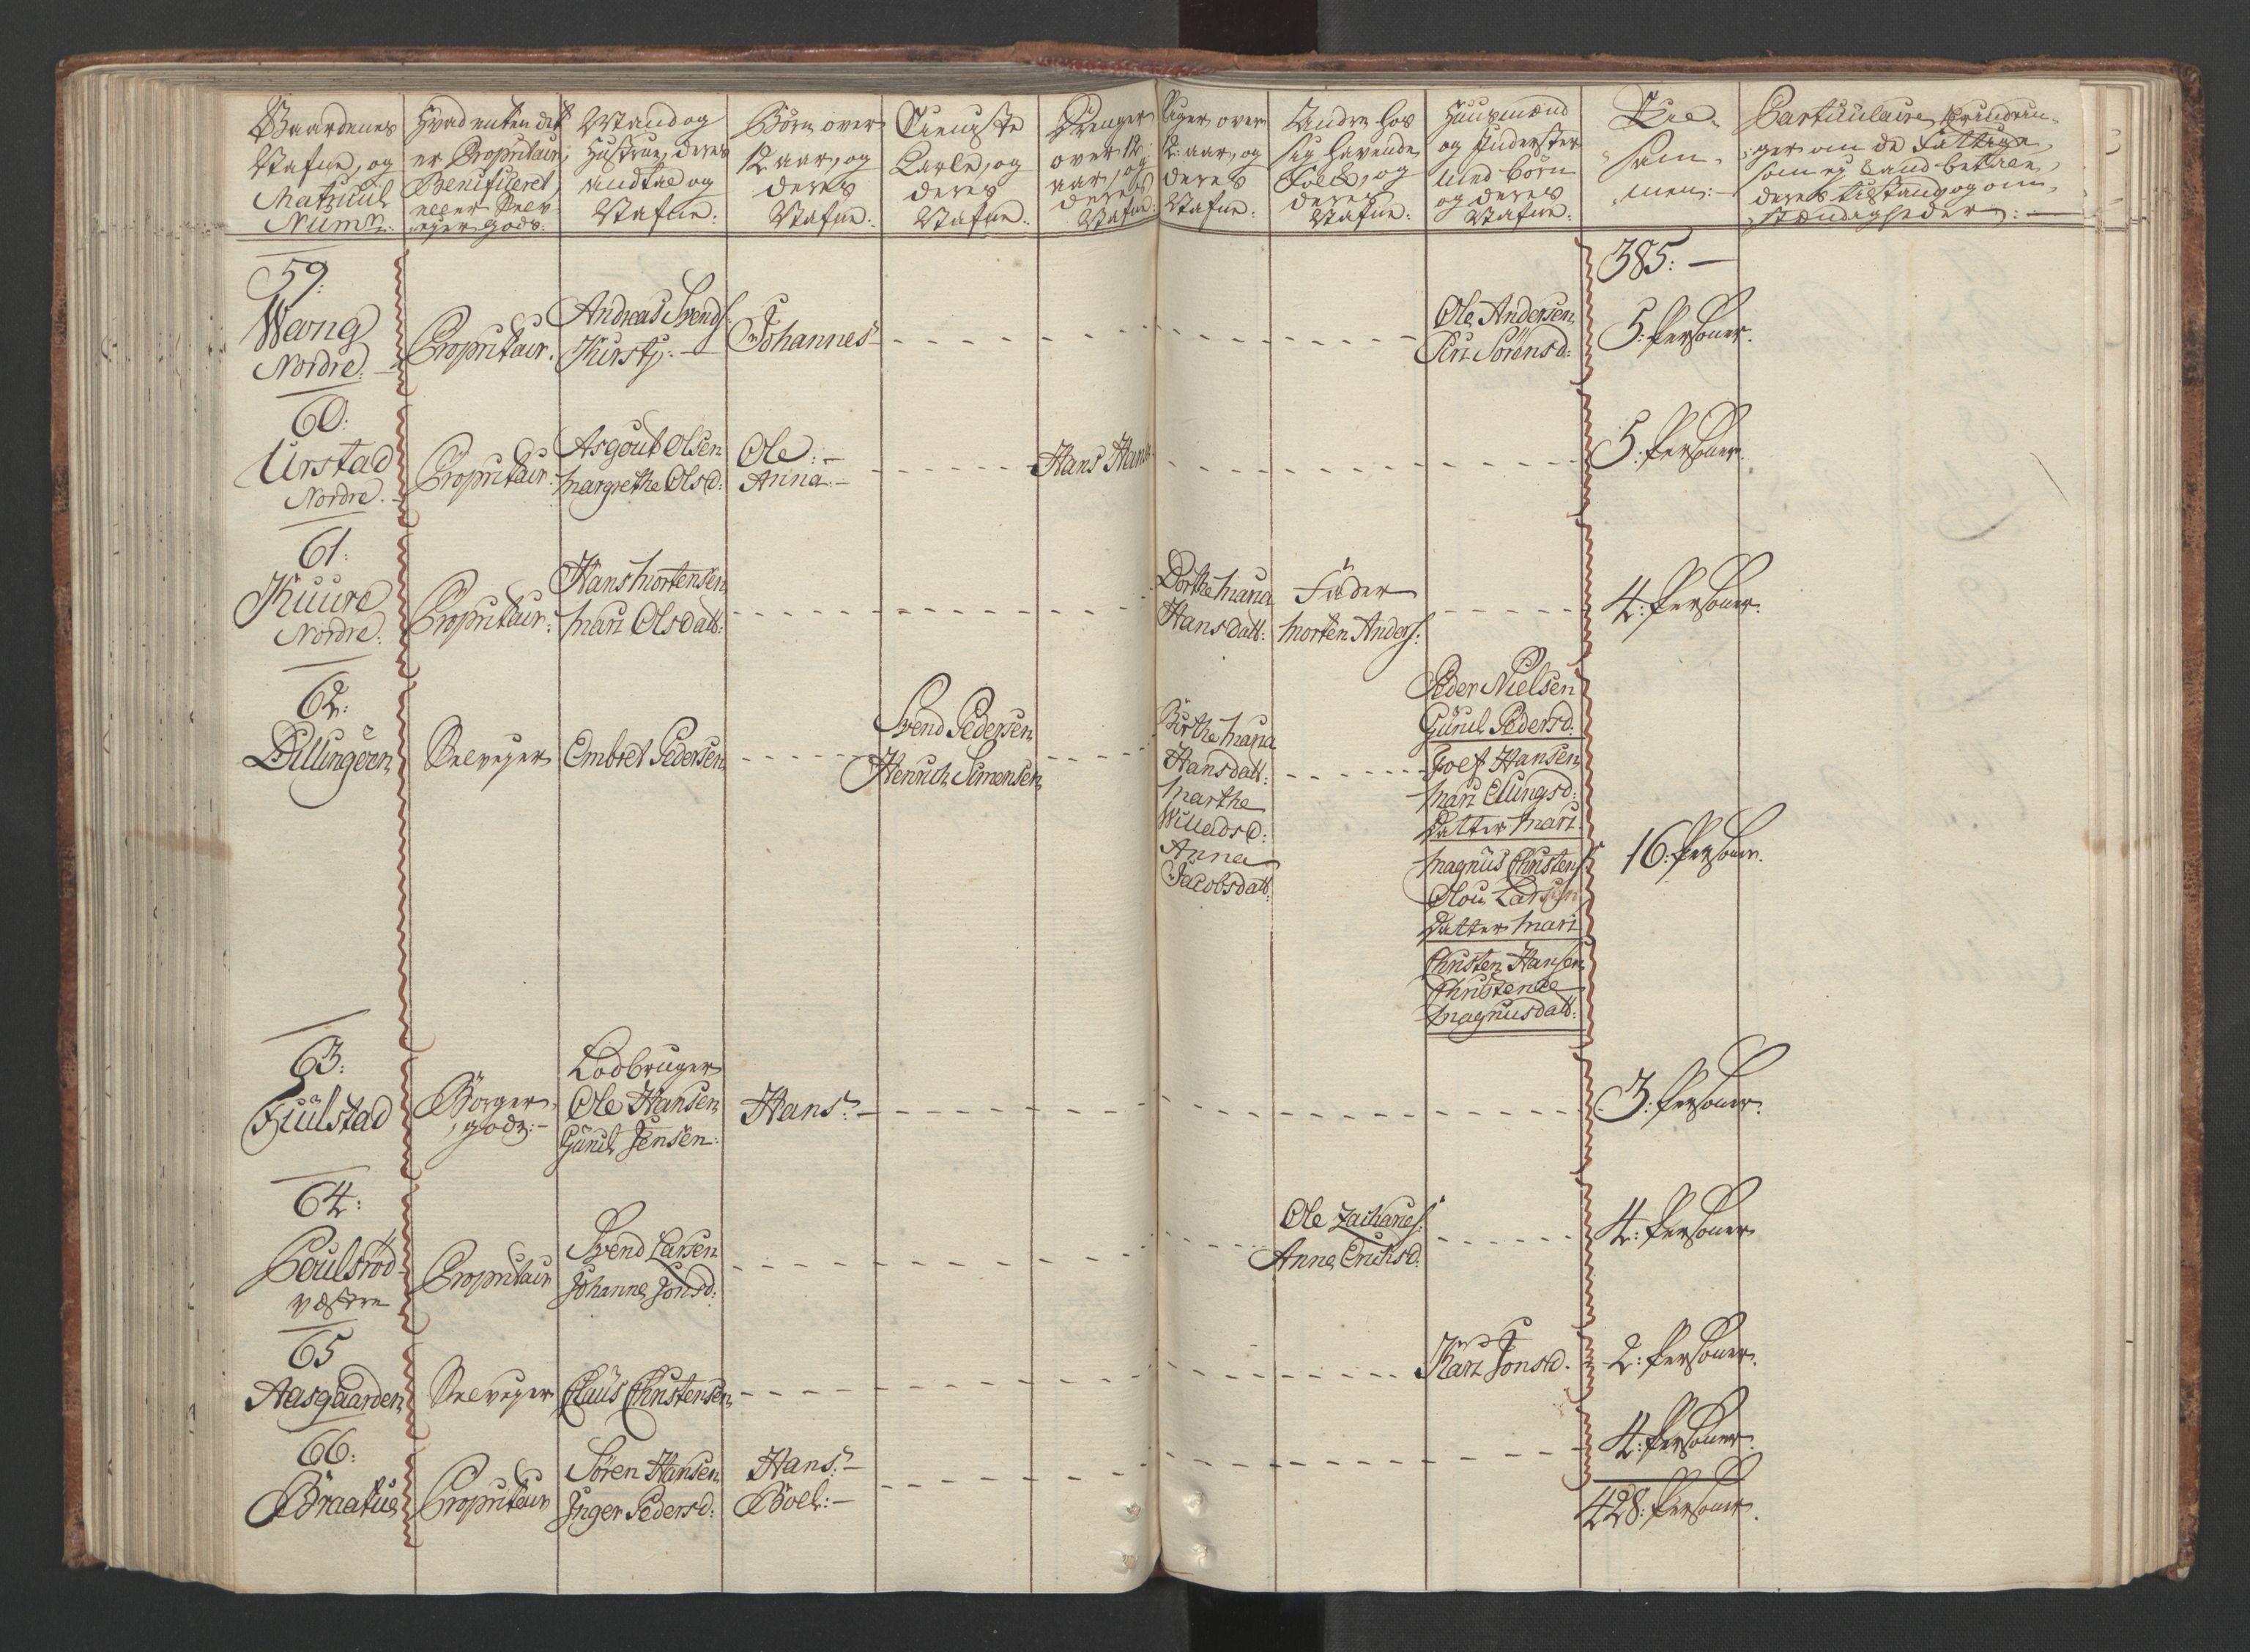 Gaardenes
Nafne, og
Matricul
Num̄r:
Hvad enten det
er Proprietair,
Beneficeret,
eller Selv-
eyer Gods:
Mand og
Hustrue, deres
Nafne:
Børn over
12 aar, og
deres
Nafne:
Tieniste
Karle, og
deres
Nafne:
Drenger
over 12
aar, og
deres
Nafne:
Piger over
12: aar, og
deres
Nafne:
Andre hos
sig havende
Folck, og
deres
Nafne:
Huusmænd
og Inderster
med Børn
og deres
Nafne:
Til-
sam-
men:
Particulaire Erindrin-
ger om de Fattige,
som ej kand betale,
deres tilstand og om-
stændigheder:
385:
59:
Wang
Nordre:
Proprietair.
Andreas Svends:
Kirsty:
Johannes
Ole Andersen
Siri Sörensd:
5: Personer.
60:
Urstad
Nordre.
Proprietair:
Asgout Olsen
Margrethe Olsd:
Ole:
Anna:
Hans Hans:
5: Personer.
61:
Kuure
Nordre:
Proprietair:
Hans Mortensen
Mari Olsdatt:
Dorthe Maria
Hansdatt:
Fader
Morten Anders:
4: Personer.
62:
Dillingöen
Selveyer
Embret Pedersen
Svend Pedersen
Henrich Simensen
Birthe Maria
Hansdatt:
Marthe
Willadsd:
Anna
Jacobsdatt:
Peder Nielsen
Gunil Pedersd:
Joef Hansen
Mari Ellingsd:
Datter Mari
Magnus Christens:
Olou Larsen
Datter Mari
Christen Hansen
Christence
Magnusdatt:
16: Personer.
63:
Fiulstad
Borger
godz:
Lodbruger
Ole Hansen
Gunil Jensen:
Hans:
3: Personer.
64:
Poulsröd
Vestre
Proprietair
Svend Larsen
Johanne Jonsd:
Ole Zacharies:
Anne Erichsd:
4: Personer
65
Aasgaarden
Selveyer
Claus Christensen
Kari Jonsd.
2: Personer.
66:
Braatue
Proprietair
Sören Hansen
Inger Pedersd:
Hans:
Boel:
4: Personer.
428: Personer.